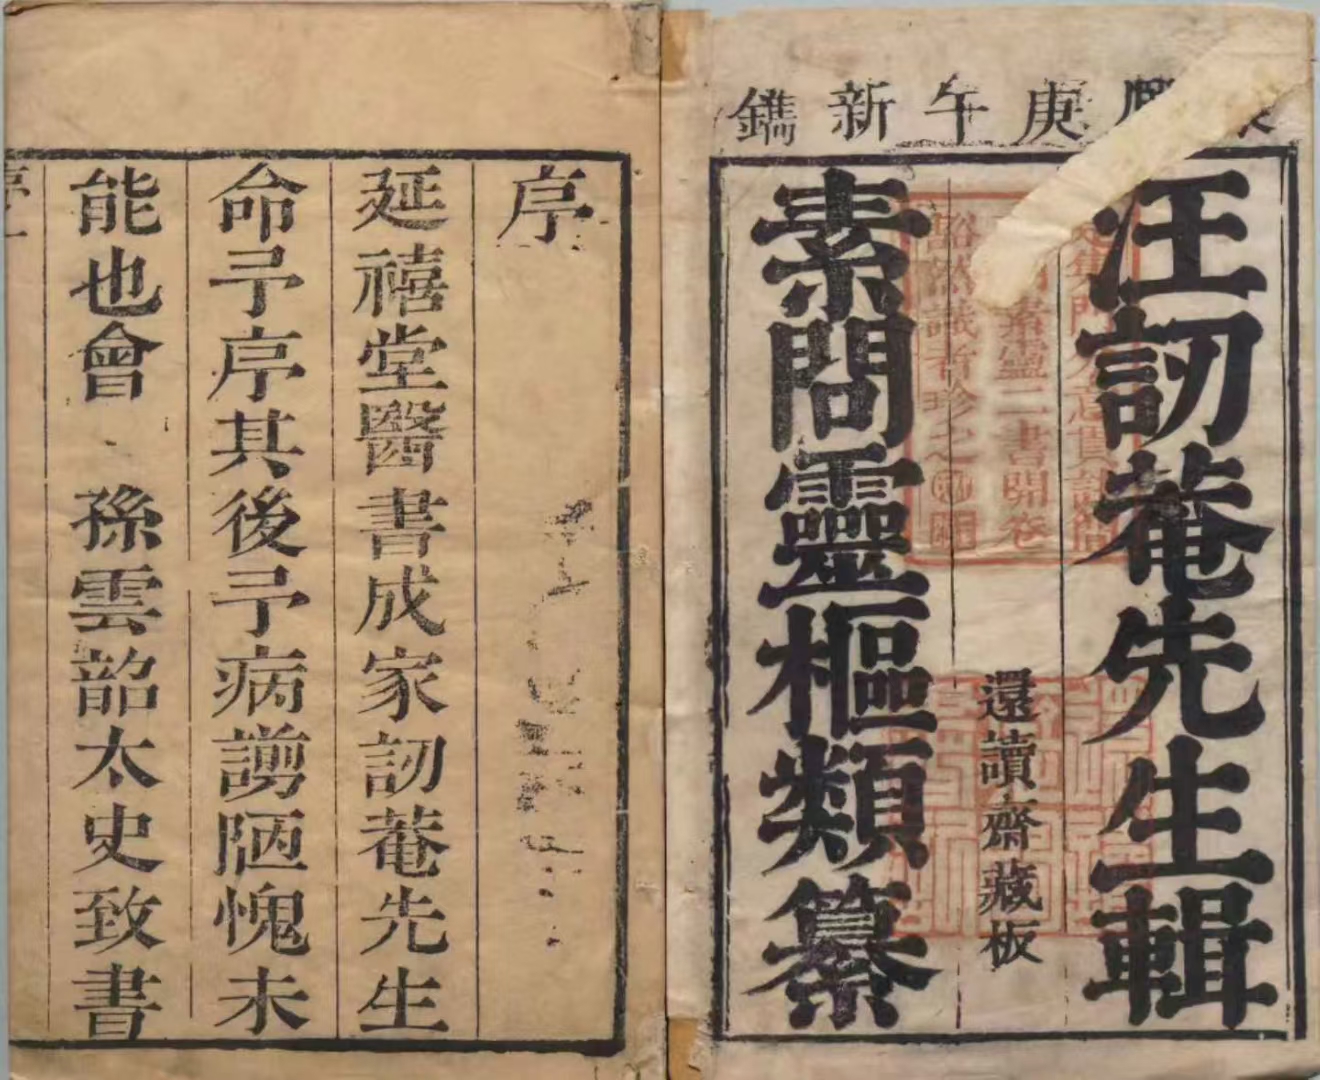 庚午新鐫
汪訒菴先生輯
素靈二書開卷
識者珍之
還讀齋藏板
素問靈樞類纂
序
延禧堂醫書成家訒菴先生
命予序其後予病謭陋愧未
能也會 孫雲韶太史致書